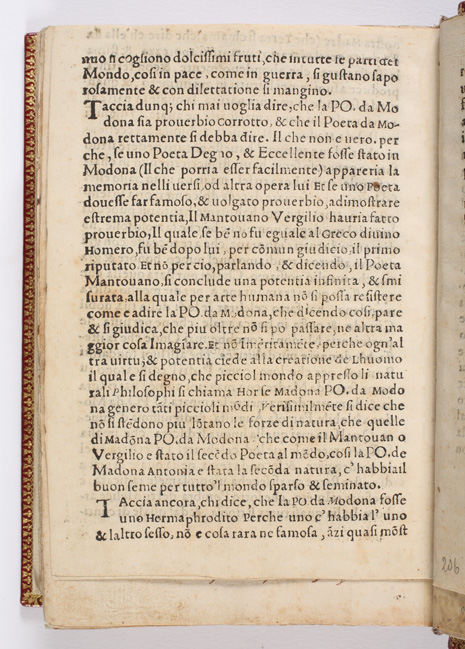 mo ñ cogliono dolcissimi fruti, che in tutte le parti del
Mondo, cosi in pace, come in guerra, si gustano sapo
rosamente & con dilettatione si mangino.
Taccia dunq; chi mai uoglia dire, che la PO. da Mo
dona sia prouerbio corrotto, & che il Poeta da Mo-
dona rettamente si debba dire. Il che non e uero. per
che, se uno Poeta Degno, & Eccellente fosse stato in
Modona (Il che porria esser facilmente) appareria la
memoria nelli uersi, od altra opera lui Et se uno Poeta
douesse far famoso, & uolgato prouerbio, adimostrare
estrema potentia, Il Mantouano Vergilio hauria fatto
prouerbio, Il quale, se bẽ nõ fu eguale al Greco diuino
Homero, fu bẽ dopo lui, per cõmun giudicio, il primo
riputato Et nõ per cio, parlando, & dicendo, il Poeta
Mantouano, si conclude una potentia infinita, & smi
surata, alla quale per arte humana nõ si possa resistere
come e adire la PO. da Modona, che dicendo cosi, pare
& si giudica, che piu oltre nõ si po passare, ne altra ma
ggior cosa Imagiare. Et nõ Imeritamẽte, perche ogn'al
tra uirtu, & potentia ciede alla creatione de Lhuomo
il quale si degno, che picciol mondo appresso li natu
rali Philosophi si chiama Hor se Madona PO. da Modo
na genero tãti piccioli mõdi, Verisimilmẽte si dice che
nõ si stẽdono piu lõtano le forze di natura, che quelle
di Madõna PO. da Modona che come il Mantouano
Vergilio e stato il secõdo Poeta al mõdo, cosi la PO. de
Madona Antonia e stata la secõda natura, c'habbia il
buon seme per tutto'l mondo sparso & seminato.
TAccia ancora, chi dice, che la PO da Modona fosse
uno Hermaphrodito Perche uno c'habbia l'uno
& laltro sesso, nõ e cosa rara ne famosa, ãzi quasi mõst
206